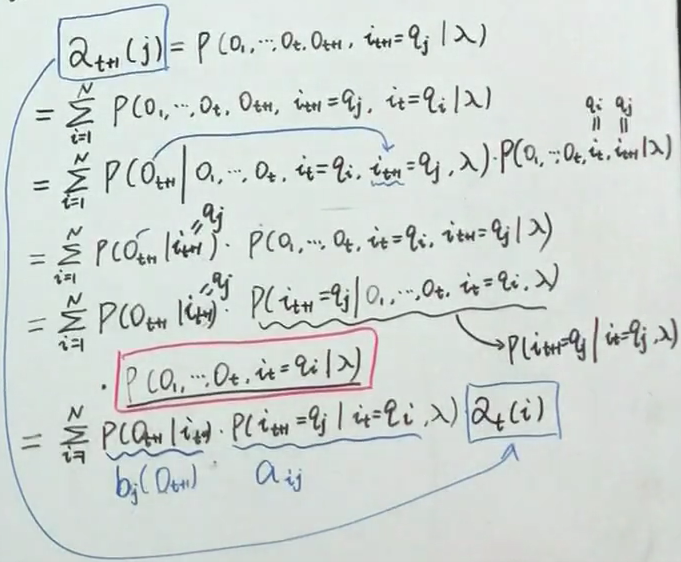 α_{t+1}(j) = P(o₁, ⋯, o_t, o_{t+1}, i_{t+1} = q_j | λ)
= ∑_{i=1}^{N} P(o₁, ⋯, o_t, o_{t+1}, i_{t+1} = q_j, i_t = q_i | λ)
q_i q_j
|| ||
= ∑_{i=1}^{N} P(o_{t+1} | o₁, ⋯, o_t, i_t = q_i, i_{t+1} = q_j, λ) · P(o₁, ⋯, o_t, i_t, i_{t+1} | λ)
= q_j
= ∑_{i=1}^{N} P(o_{t+1} | i_{t+1}) · P(o₁, ⋯, o_t, i_t = q_i, i_{t+1} = q_j | λ)
= q_j
= ∑_{i=1}^{N} P(o_{t+1} | i_{t+1}) · P(i_{t+1} = q_j | o₁, ⋯, o_t, i_t = q_i, λ)
P(i_{t+1} = q_j | i_t = q_j, λ)
· P(o₁, ⋯, o_t, i_t = q_i | λ)
= ∑_{i=1}^{N} P(o_{t+1} | i_{t+1}) · P(i_{t+1} = q_j | i_t = q_i, λ) α_t(i)
b_j(o_{t+1}) · a_{ij}